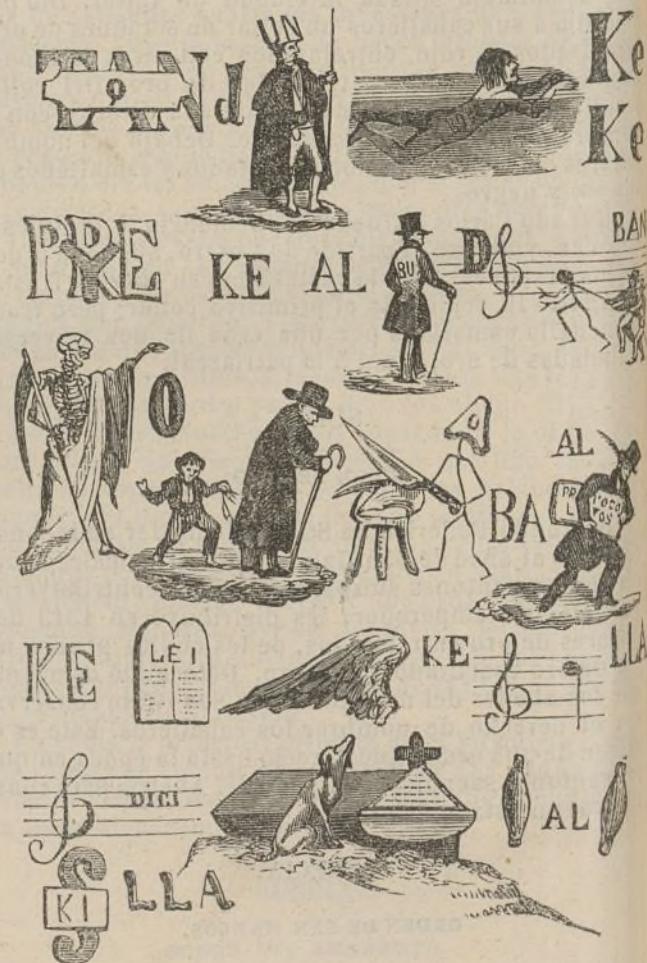 TAN O d UN Ke
Ke
PRE Y KE AL BU D BAN
O O AL
BA PR L
KE LEI KE LLA
DICI AL
KI S LLA